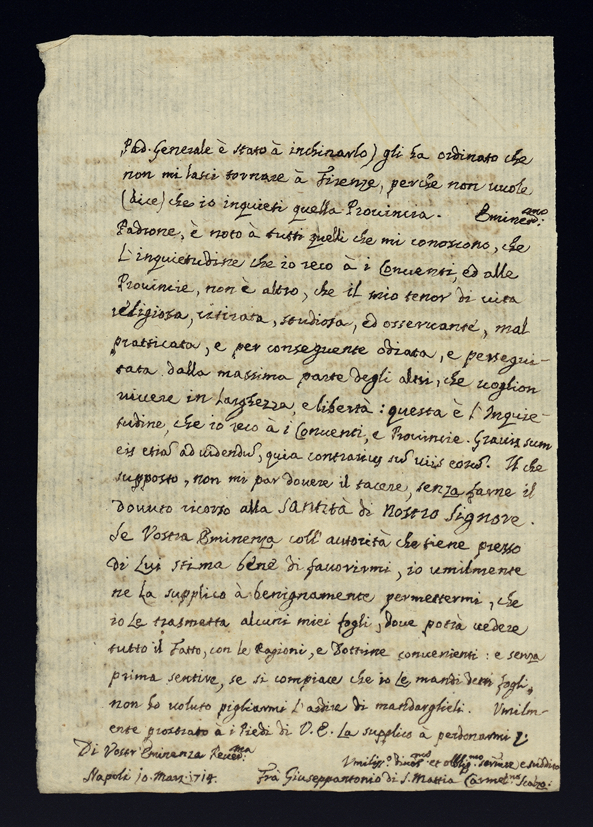 Pad. Generale è stato à inchinarlo) gli ha ordinato che
non mi lasci tornare à Firenze, perche non vuole
(dice) che io inquieti quella Provincia. Eminen.mo
Padrone, è noto à tutti quelli che mi conoscono, che
L'inquietudine che io reco à i Conventi, ed alle
Provincie, non è altro, che il mio tenor di vita
religiosa, ritirata, studiosa, ed osservante, mal
pratticata, e per conseguente odiata, e persegui-
tata dalla massima parte degli altri, che voglion
vivere in Larghezza, e libertà: questa è l'Inquie-
tudine, che io reco à i Conventi, e Provincie. Gravis sum
eis etia ad videndu, quia contrarius su viis eoru. Il che
supposto, non mi par dovere il tacere, senza farne il
dovuto ricorso alla Santità di Nostro Signore.
Se Vostra Eminenza coll'autorità che tiene presso
di Lui stima bene di favorirmi, io umilmente
ne La supplico à benignamente permettermi, che
io Le trasmetta alcuni miei fogli, dove potrà vedere
tutto il Fatto, con le Ragioni, e Dottrine convenienti: e senza
prima sentire, se si compiace che io Le mandi detti fogli,
non ho voluto pigliarmi L'ardire di mandarglieli. Umilm-
ente prostrato à i Piedi di V. E. La supplico à perdonarmi
Di Vostr'Eminenza Rever.ma
Umiliss.o divot.mo et obblig.mo servitore e suddito
Napoli 10. Marz. 1714. Fra Giuseppantonio di S. Mattia Carmel.no Scalzo.